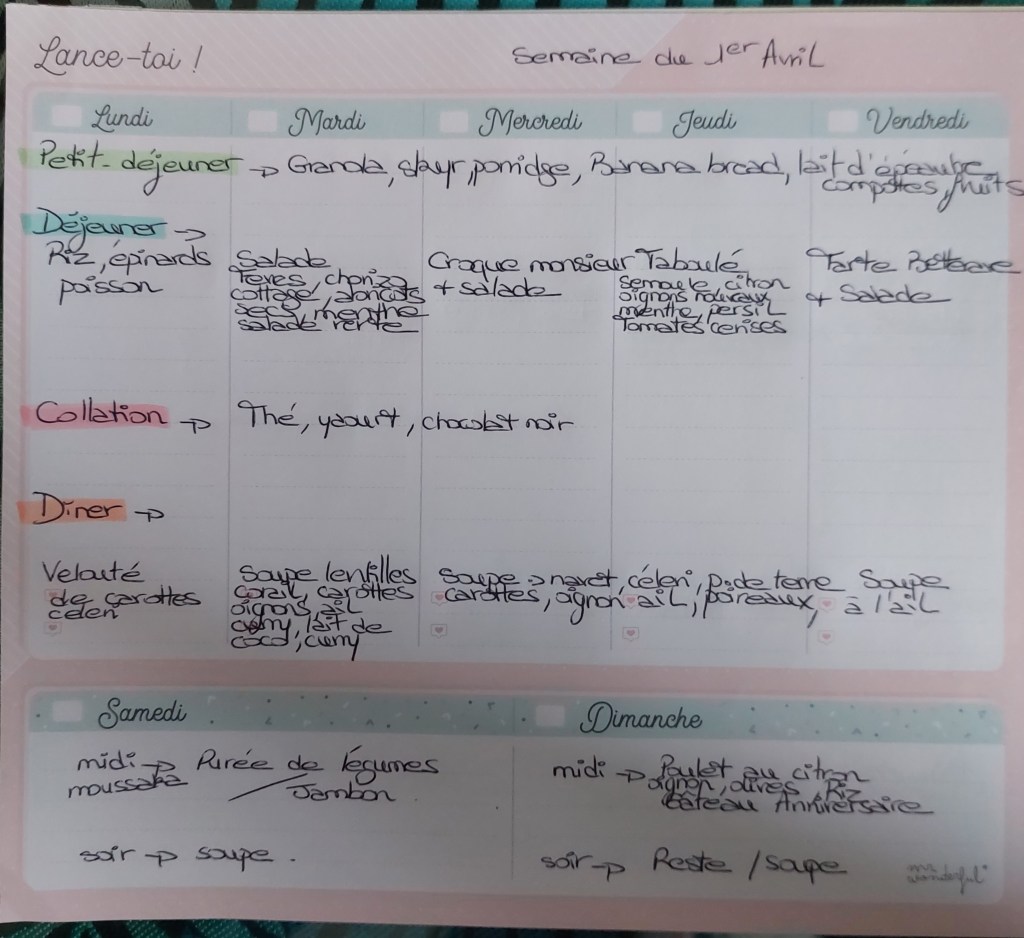 Lance-toi !
Semaine du 1er Avril
Lundi Mardi Mercredi Jeudi Vendredi
Petit-déjeuner → Granola, skyr, porridge, Banana bread, lait d'épeautre,
compotes, fruits
Déjeuner →
Riz, épinards
poisson
Salade
Fèves, chorizo
cottage, abricots
secs, menthe
salade verte
Croque monsieur
+ salade
Taboulé
semoule, citron
oignons nouveaux
menthe, persil
Tomates cerises
Tarte Betterave
+ Salade
Collation → Thé, yaourt, chocolat noir
Dîner →
Velouté
de carottes
céleri
Soupe lentilles
corail, carottes
oignons, ail
curry, lait de
coco, curry
Soupe → navet, céleri, p. de terre
carottes, oignon ail, poireaux,
Soupe
à l'ail
Samedi
midi → Purée de légumes
moussaka / Jambon
soir → soupe.
Dimanche
midi → Poulet au citron
oignon, olives, Riz
Gâteau Anniversaire
soir → Reste / soupe
mr. wonderful*